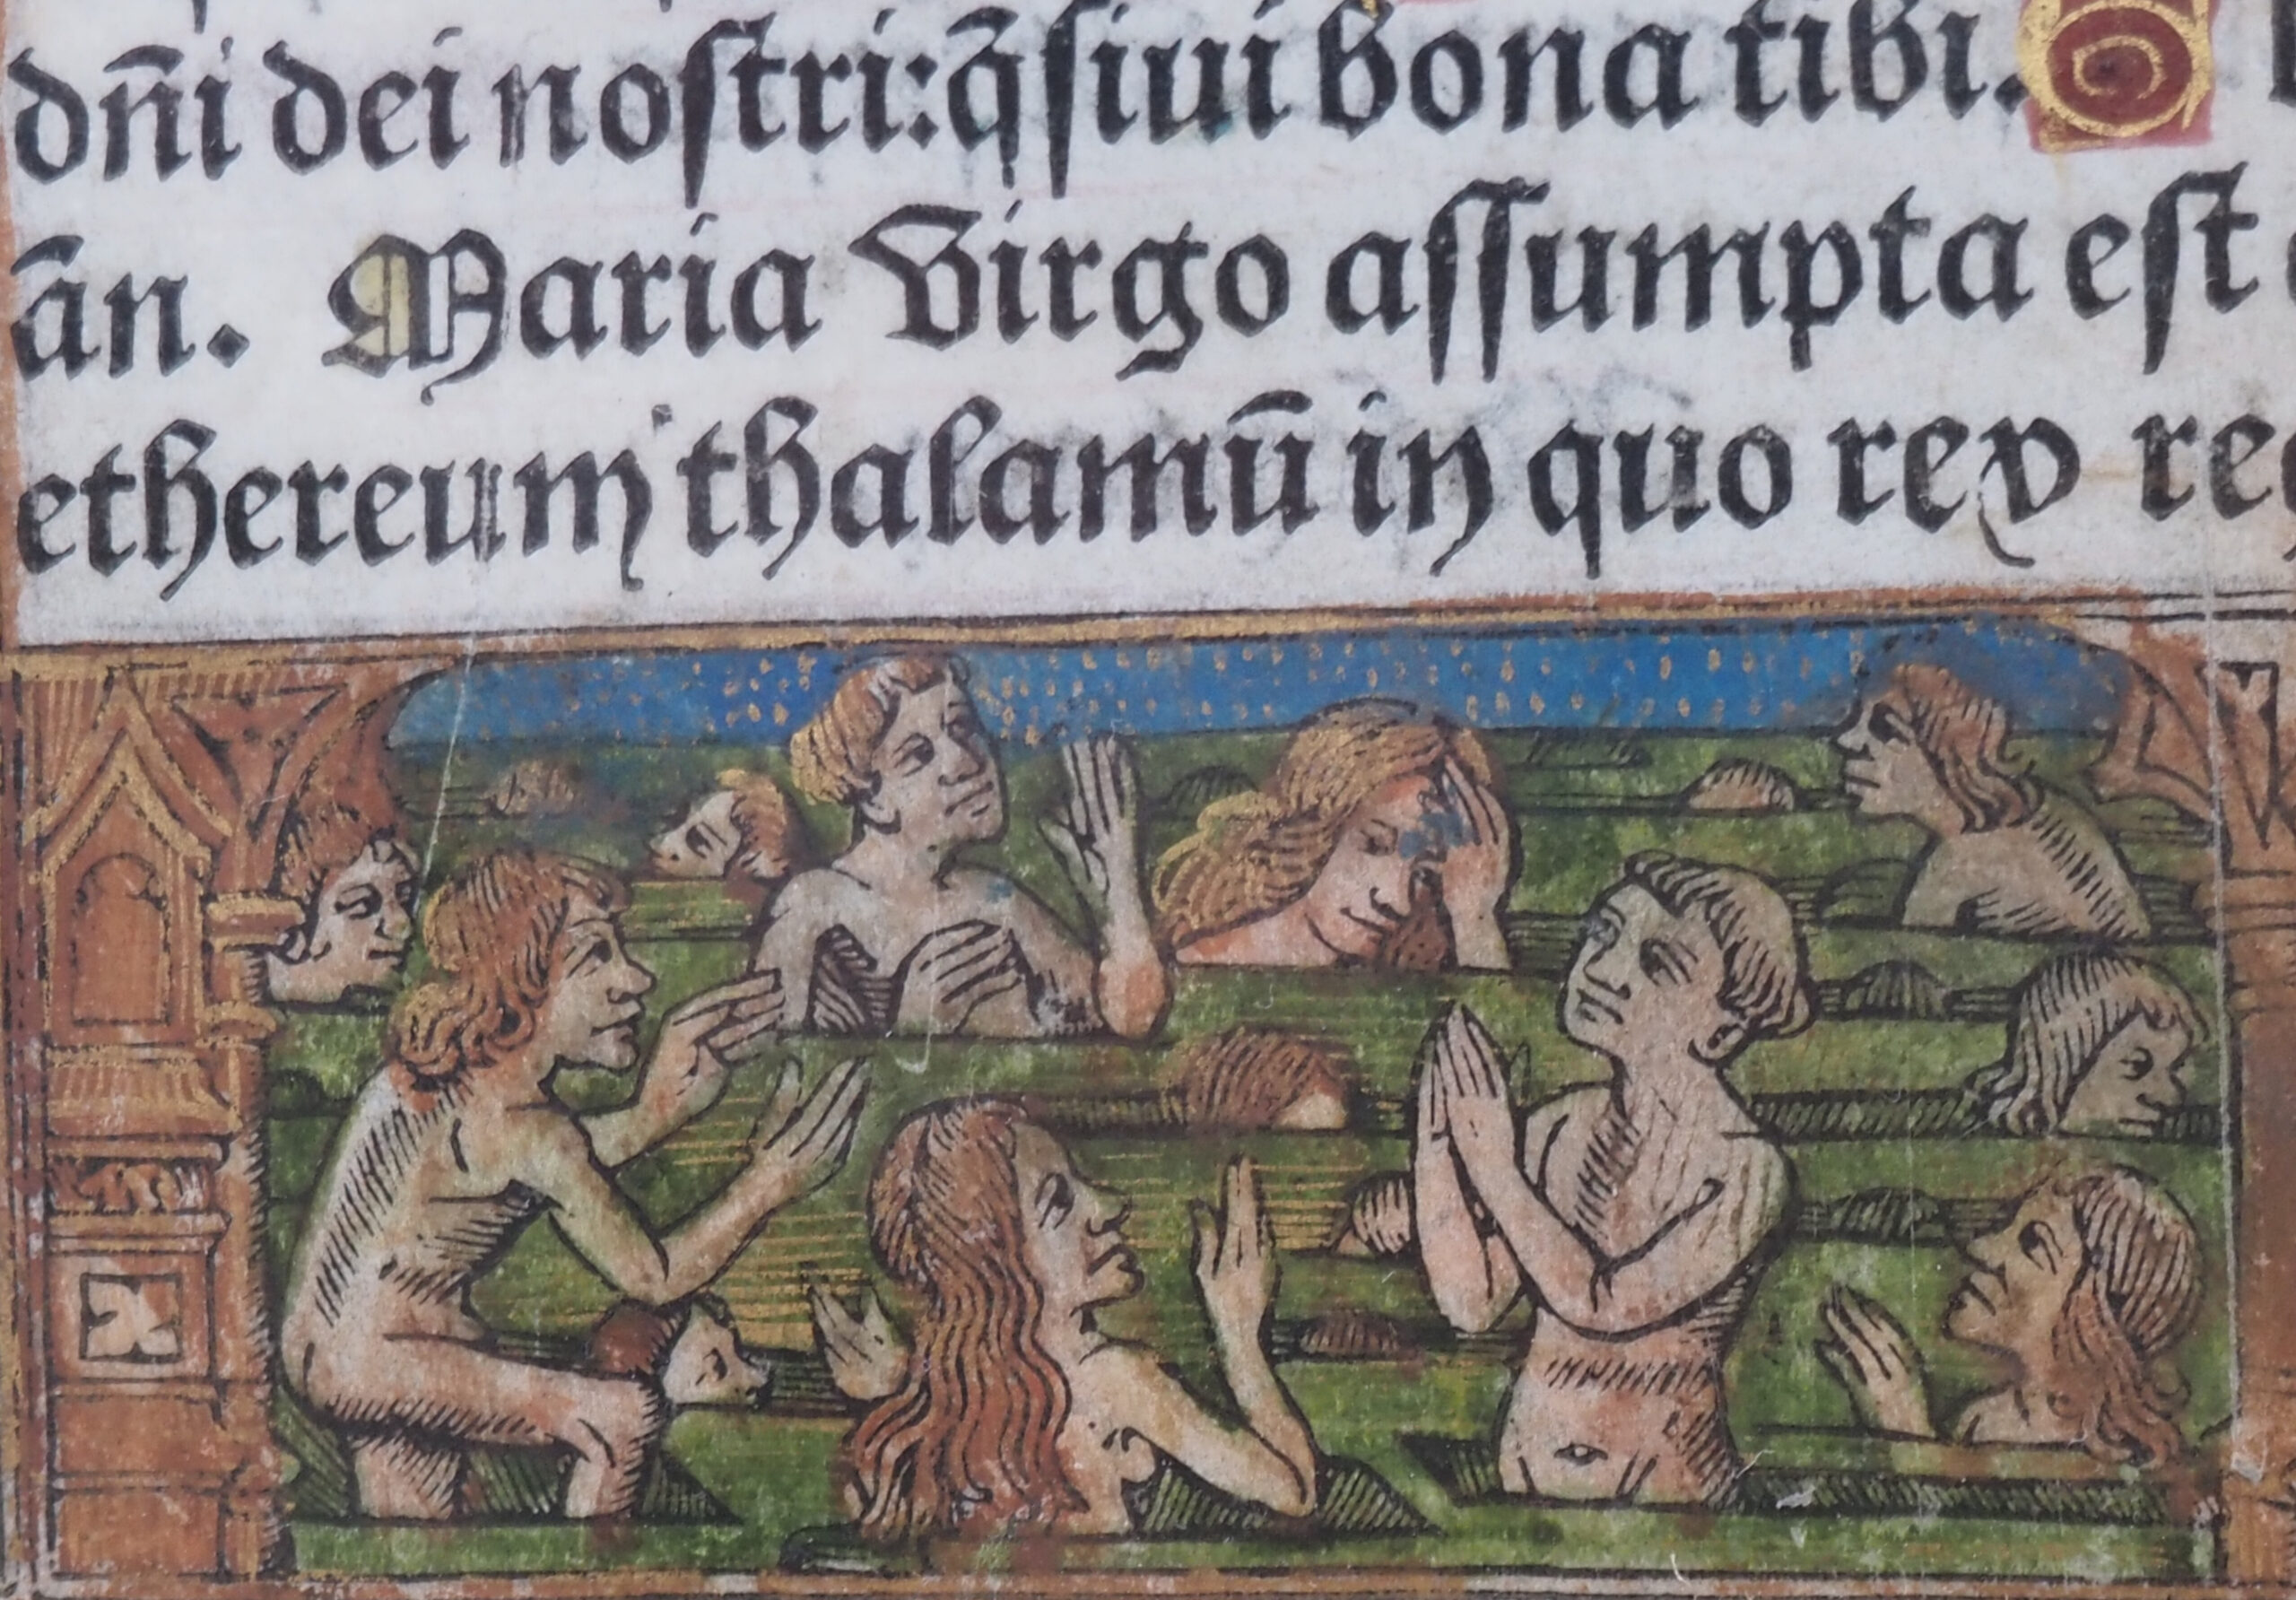 dn̄i dei noſtri: q̄ſiui bona tibi.
ān. Maria Virgo aſſumpta est
ethereum thalamū in quo rex